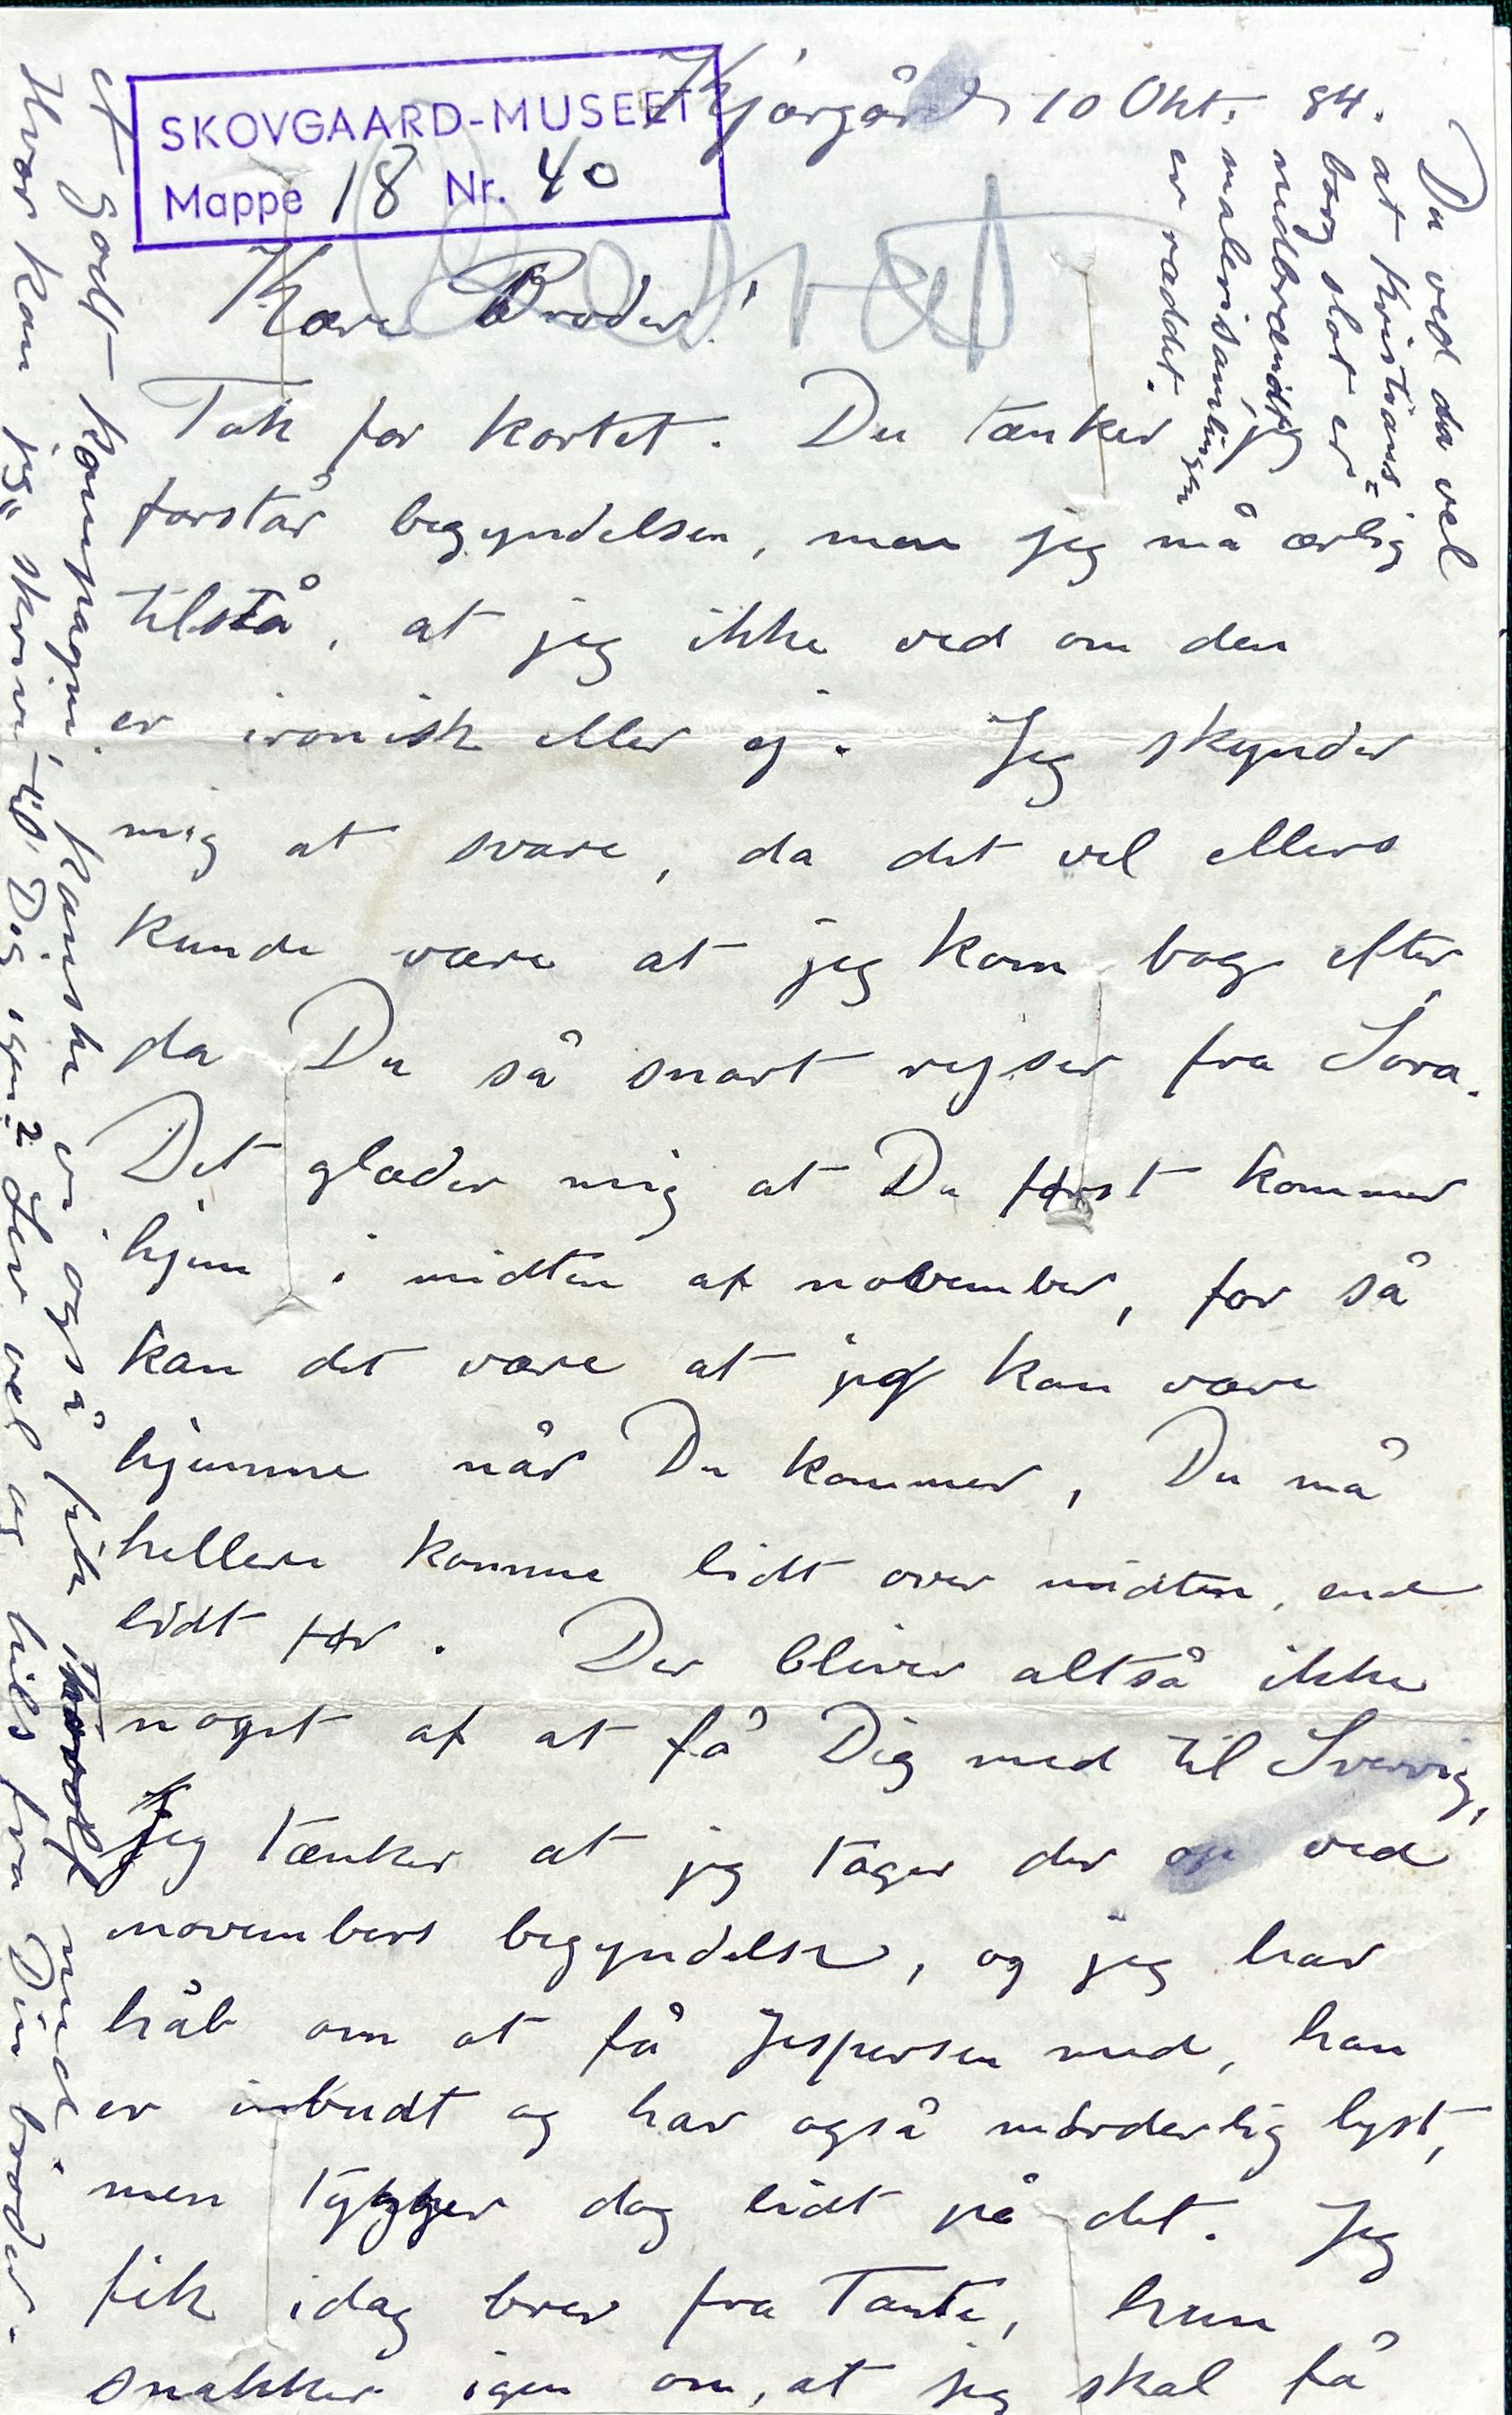 SKOVGAARD-MUSEET
Mappe 18 Nr. 40
Kjærgård 10 Okt. 84.
Kære Broder!
Tak for kortet. Du tænker jeg
forstår begyndelsen, men jeg må ærlig
tilstå, at jeg ikke ved om den
er ironisk eller ej. Jeg skynder
mig at svare, da det vel ellers
kunde være at jeg kom bag efter,
da Du så snart rejser fra Sora.
Det glæder mig at Du først kommer
hjem i midten af november, for så
kan det være at jeg kan være
hjemme når Du kommer, Du må
hellere komme lidt over midten, end
lidt før. Der bliver altså ikke
noget af at få Dig med til Sverrig,
Jeg tænker at jeg tager der op ved
novembers begyndelse, og jeg har
håb om at få Jespersen med, han
er inbudt og har også morderlig lyst,
men tygger dog lidt på det. Jeg
fik idag brev fra Tante, hun
snakker igen om, at jeg skal få
et godt kompagni, kanske vi også fik Thorolf med.
Hvor kan jeg skrive til Dig igen? Lev vel og hils fra Din broder.
Du ved da vel
at Kristians=
borg slot er
nedbrændt,
malerisamlingen
er reddet.